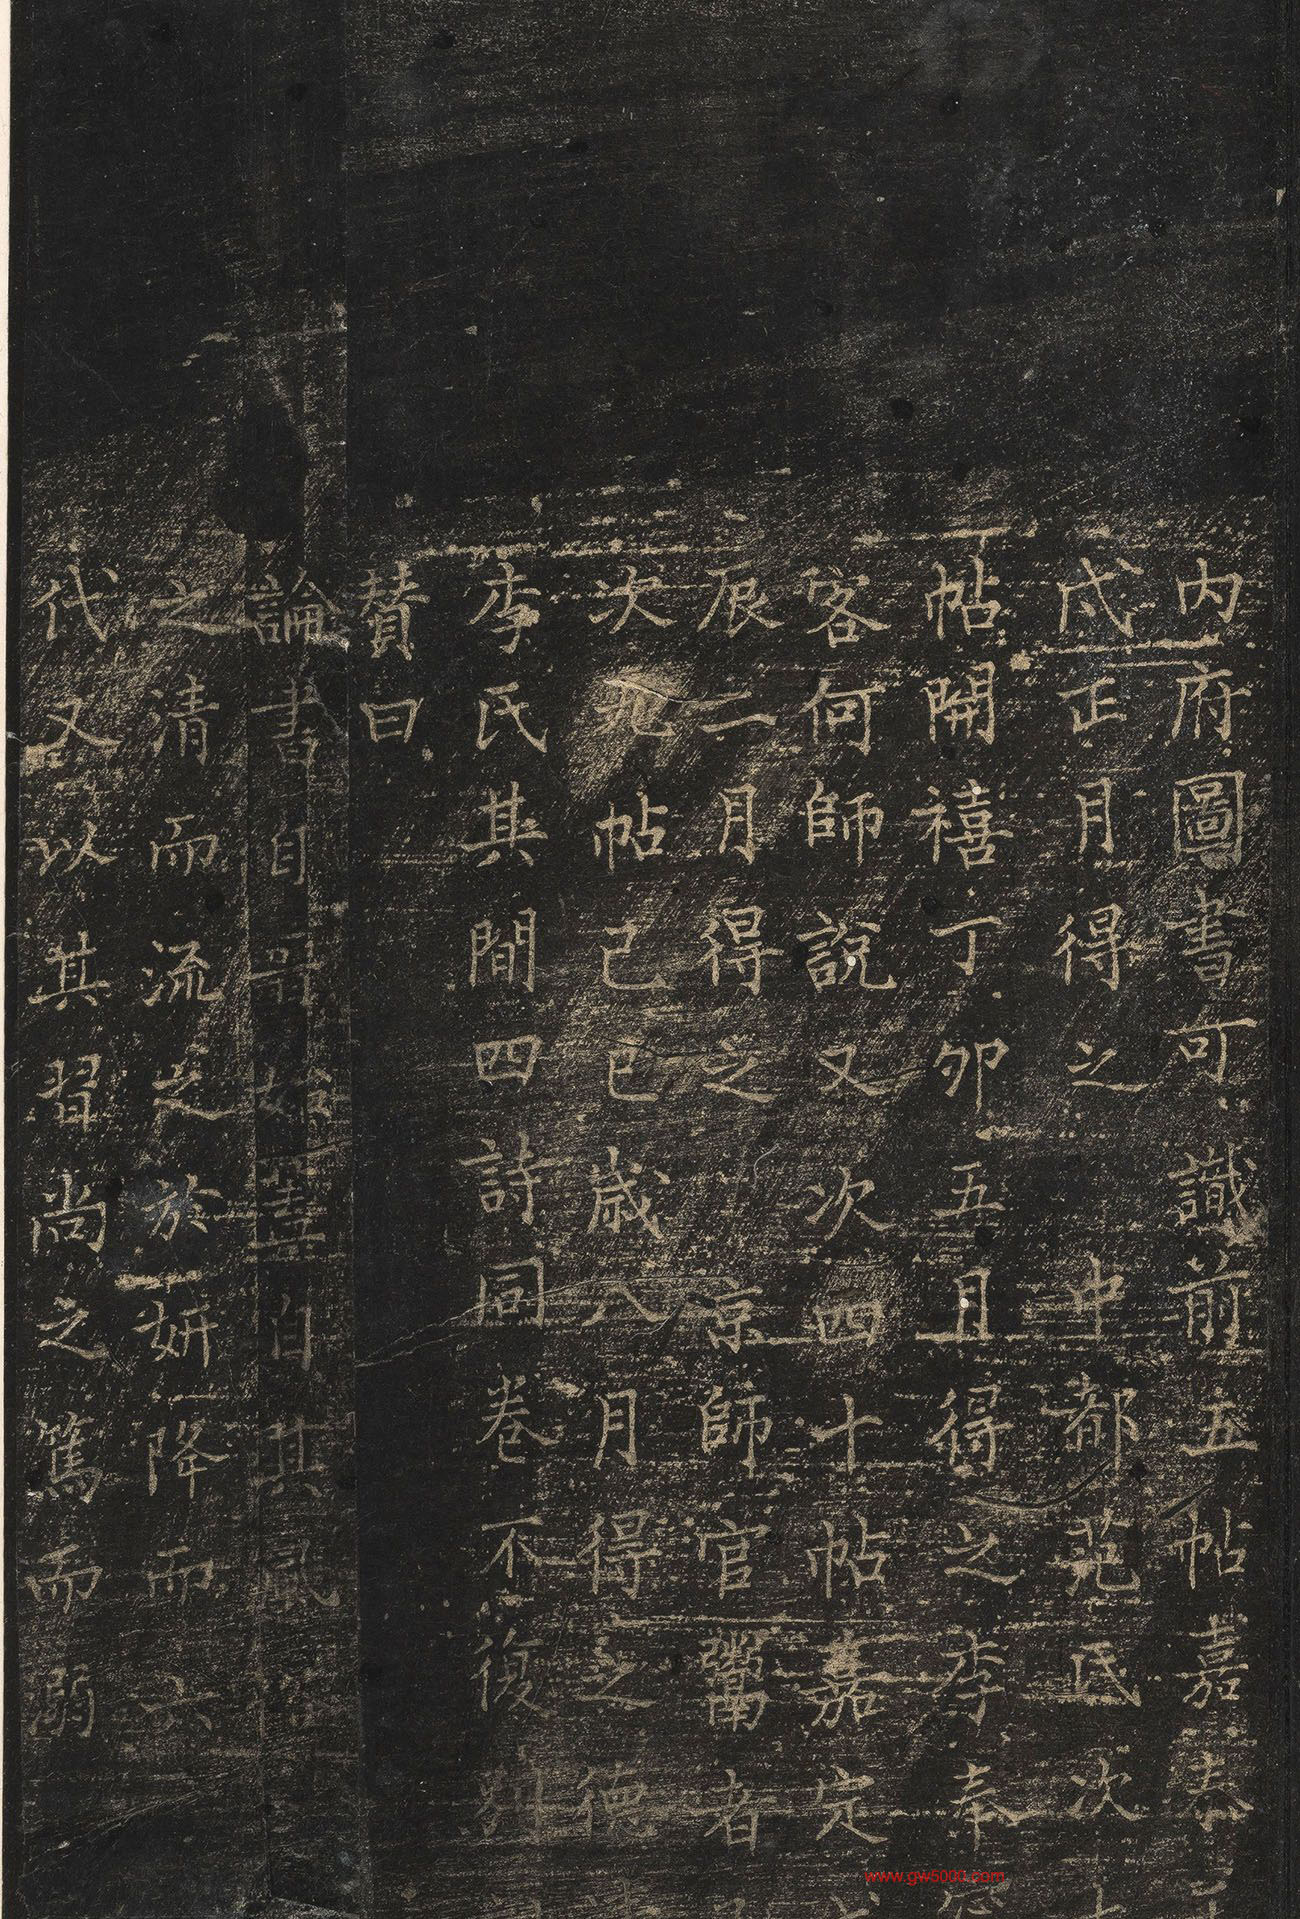 内府圖書可識前五帖嘉泰
戌正月得之中都范氏次
帖開禧丁卯五月得之李奉
客何師說又次四十帖嘉定
辰二月得之京師官鬻者
次九帖己巳歲八月得之德
李氏其間四詩同卷不復別
贊曰
論書自晉始善自其風
之清而流之於妍降而六
代又以其習尚之篤而溺
www.gw5000.com